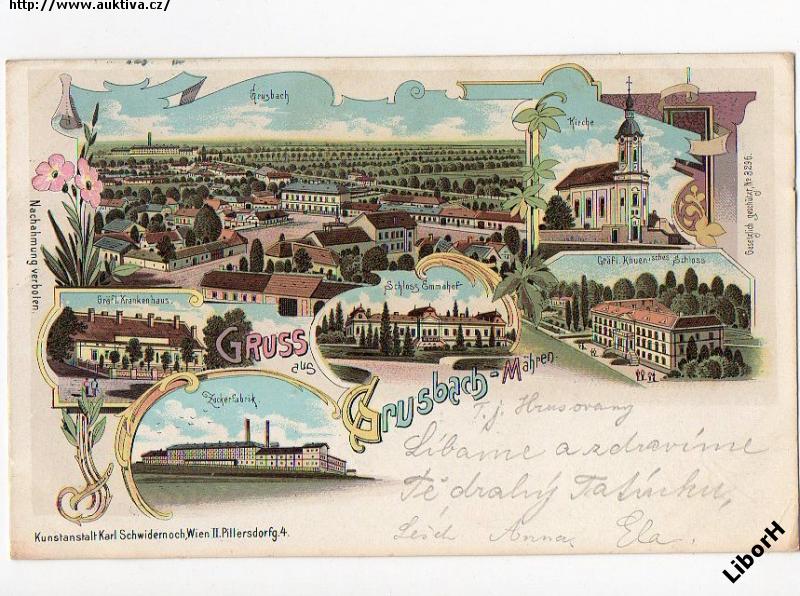 http://www.auktiva.cz/
Grusbach
Kirche
Gesetzlich geschützt, No 8296.
Nachahmung verboten.
Gräfl. Khuen'sches Schloss
Schloss Emmahof
Gräfl. Krankenhaus.
Gruss
aus
Grusbach-Mähren.
Zuckerfabrik
T. j. Hrusovany
Líbame a zdravíme
Tě drahý Tatínku,
Anna, Ela.
Kunstanstalt Karl Schwidernoch, Wien II. Pillersdorfg. 4.
LiborH